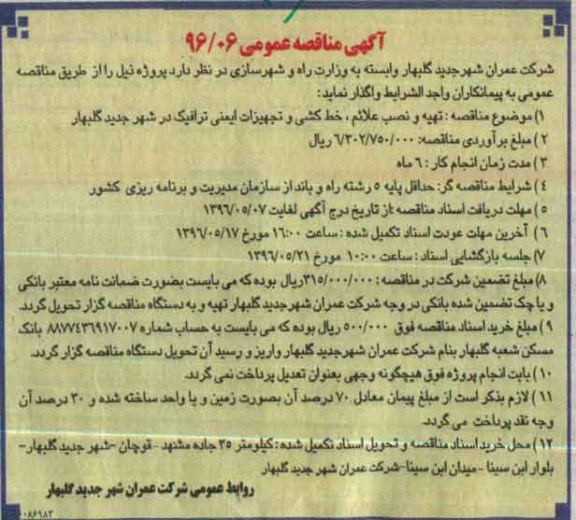 آگهی مناقصه عمومی ۹۶/۰۶
شرکت عمران شهرجدید گلبهار وابسته به وزارت راه و شهرسازی در نظر دارد پروژه ذیل را از طریق مناقصه
عمومی به پیمانکاران واجد الشرایط واگذار نماید:
۱) موضوع مناقصه : تهیه و نصب علائم ، خط کشی و تجهیزات ایمنی ترافیک در شهر جدید گلبهار
۲) مبلغ برآوردی مناقصه: ۶/۳۰۲/۷۵۰/۰۰۰ ریال
۳) مدت زمان انجام کار : ۶ ماه
۴) شرایط مناقصه گر: حداقل پایه ۵ رشته راه و باند از سازمان مدیریت و برنامه ریزی کشور
۵) مهلت دریافت اسناد مناقصه :از تاریخ درج آگهی لغایت ۱۳۹۶/۰۵/۰۷
۶) آخرین مهلت عودت اسناد تکمیل شده : ساعت ۱۶:۰۰ مورخ ۱۳۹۶/۰۵/۱۷
۷) جلسه بازگشایی اسناد : ساعت ۱۰:۰۰ مورخ ۱۳۹۶/۰۵/۲۱
۸) مبلغ تضمین شرکت در مناقصه : ۳۱۵/۰۰۰/۰۰۰ریال بوده که می بایست بصورت ضمانت نامه معتبر بانکی
و یا چک تضمین شده بانکی در وجه شرکت عمران شهرجدید گلبهار تهیه و به دستگاه مناقصه گزار تحویل گردد.
۹) مبلغ خرید اسناد مناقصه فوق ۵۰۰/۰۰۰ ریال بوده که می بایست به حساب شماره ۸۸۷۷۴۳۶۹۱۷۰۰۷ بانک
مسکن شعبه گلبهار بنام شرکت عمران شهرجدید گلبهار واریز و رسید آن تحویل دستگاه مناقصه گزار گردد.
۱۰) بابت انجام پروژه فوق هیچگونه وجهی بعنوان تعدیل پرداخت نمی گردد.
۱۱) لازم بذکر است از مبلغ پیمان معادل ۷۰ درصد آن بصورت زمین و یا واحد ساخته شده و ۳۰ درصد آن
وجه نقد پرداخت می گردد.
۱۲) محل خرید اسناد مناقصه و تحویل اسناد تکمیل شده : کیلومتر ۳۵ جاده مشهد - قوچان -شهر جدید گلبهار-
بلوار ابن سینا - میدان ابن سینا-شرکت عمران شهر جدید گلبهار
روابط عمومی شرکت عمران شهر جدید گلبهار